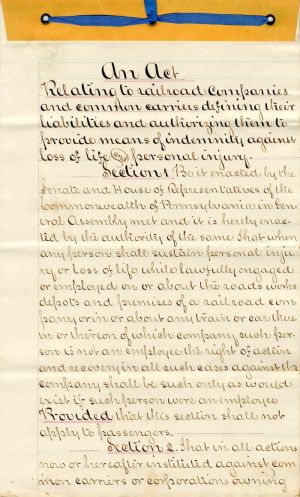 An Act
Relating to railroad companies
and common carriers defining their
liabilities and authorizing them to
provide means of indemnity against
loss of life and personal injury.
Section 1 Be it enacted by the
Senate and House of Representatives of the
Commonwealth of Pennsylvania in Gen
eral Assembly met and it is hereby enac
ted by the authority of the same That when
any person shall sustain personal inju
ry or loss of life while lawfully engaged
or employed on or about the roads works
depots and premises of a railroad com
pany or in or about any train or car there
in or thereon of which company such per
son is not an employee the right of action
and recovery in all such cases against the
company shall be such only as would
exist if such person were an employee
Provided that this section shall not
apply to passengers.
Section 2. That in all actions
now or hereafter instituted against com
mon carriers or corporations owning